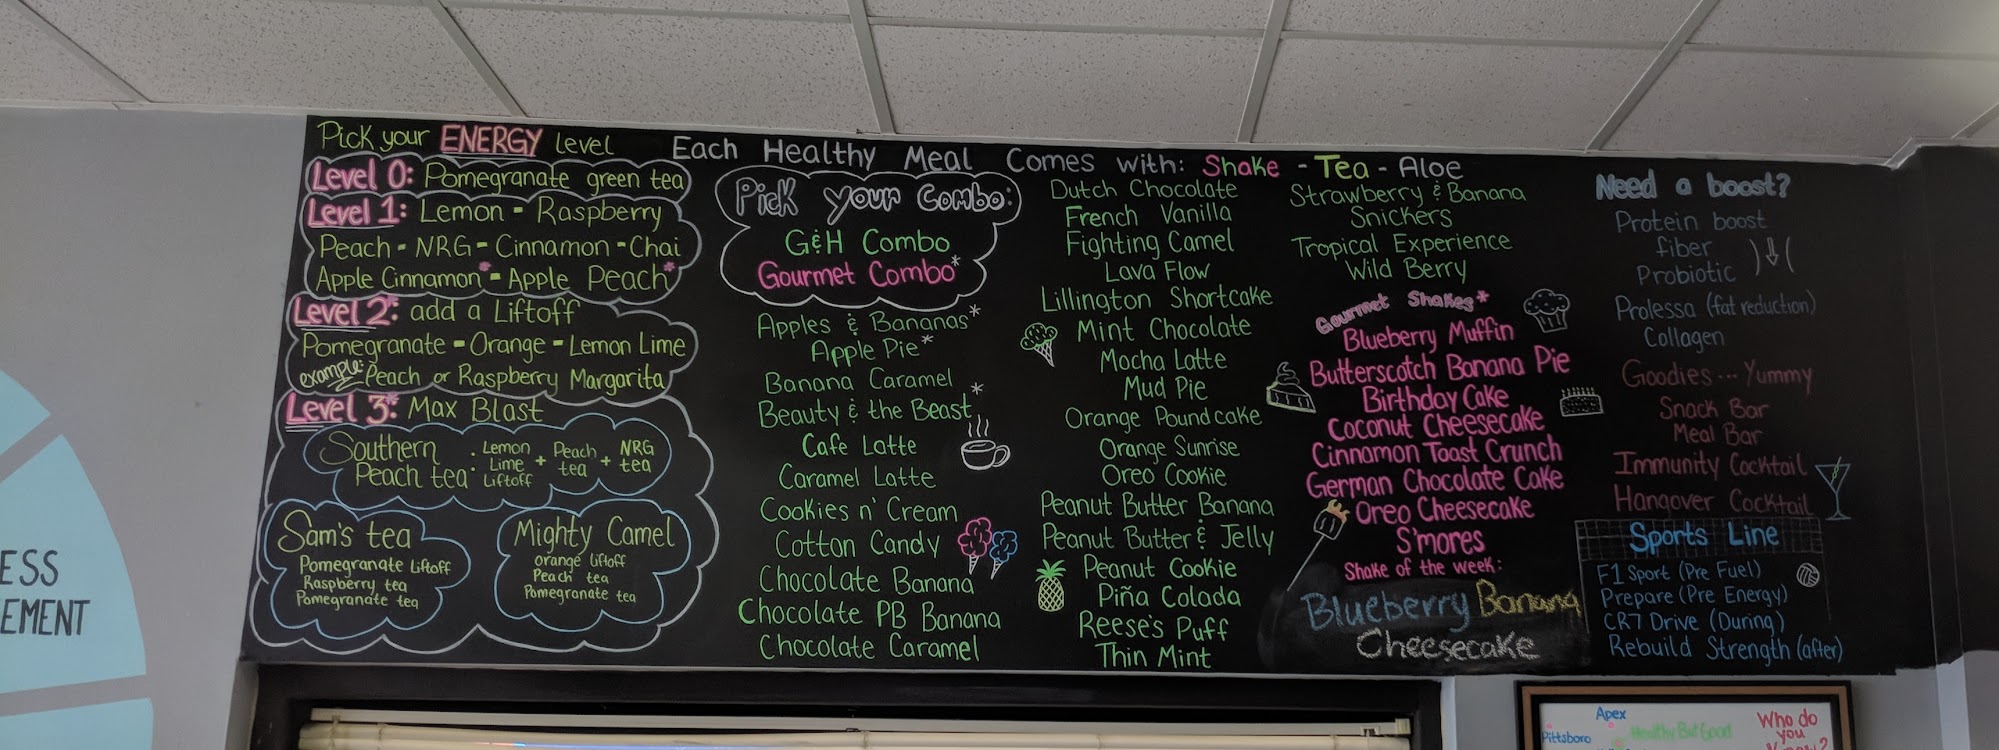 Pick your ENERGY level
Level 0: Pomegranate green tea
Level 1: Lemon - Raspberry
Peach - NRG - Cinnamon - Chai
Apple Cinnamon* - Apple Peach*
Level 2*: add a Liftoff
Pomegranate - Orange - Lemon Lime
example: Peach or Raspberry Margarita
Level 3*: Max Blast
Southern Peach tea: Lemon Lime Liftoff + Peach tea + NRG tea
Sam's tea
Pomegranate Liftoff
Raspberry tea
Pomegranate tea
Mighty Camel
orange liftoff
Peach tea
Pomegranate tea
Each Healthy Meal Comes with: Shake - Tea - Aloe
Pick your Combo:
G&H Combo
Gourmet Combo*
Apples & Bananas*
Apple Pie*
Banana Caramel
Beauty & the Beast*
Cafe Latte
Caramel Latte
Cookies n' Cream
Cotton Candy
Chocolate Banana
Chocolate PB Banana
Chocolate Caramel
Dutch Chocolate
French Vanilla
Fighting Camel
Lava Flow
Lillington Shortcake
Mint Chocolate
Mocha Latte
Mud Pie
Orange Poundcake
Orange Sunrise
Oreo Cookie
Peanut Butter Banana
Peanut Butter & Jelly
Peanut Cookie
Piña Colada
Reese's Puff
Thin Mint
Strawberry & Banana
Snickers
Tropical Experience
Wild Berry
Gourmet Shakes*
Blueberry Muffin
Butterscotch Banana Pie
Birthday Cake
Coconut Cheesecake
Cinnamon Toast Crunch
German Chocolate Cake
Oreo Cheesecake
S'mores
Shake of the week:
Blueberry Banana
Cheesecake
Need a boost?
Protein boost
fiber
Probiotic
Prolessa (fat reduction)
Collagen
Goodies... Yummy
Snack Bar
Meal Bar
Immunity Cocktail
Hangover Cocktail
Sports Line
F1 Sport (Pre Fuel)
Prepare (Pre Energy)
CR7 Drive (During)
Rebuild Strength (after)
ESS
EMENT
Apex
Pittsboro
Healthy But Good
Who do
you